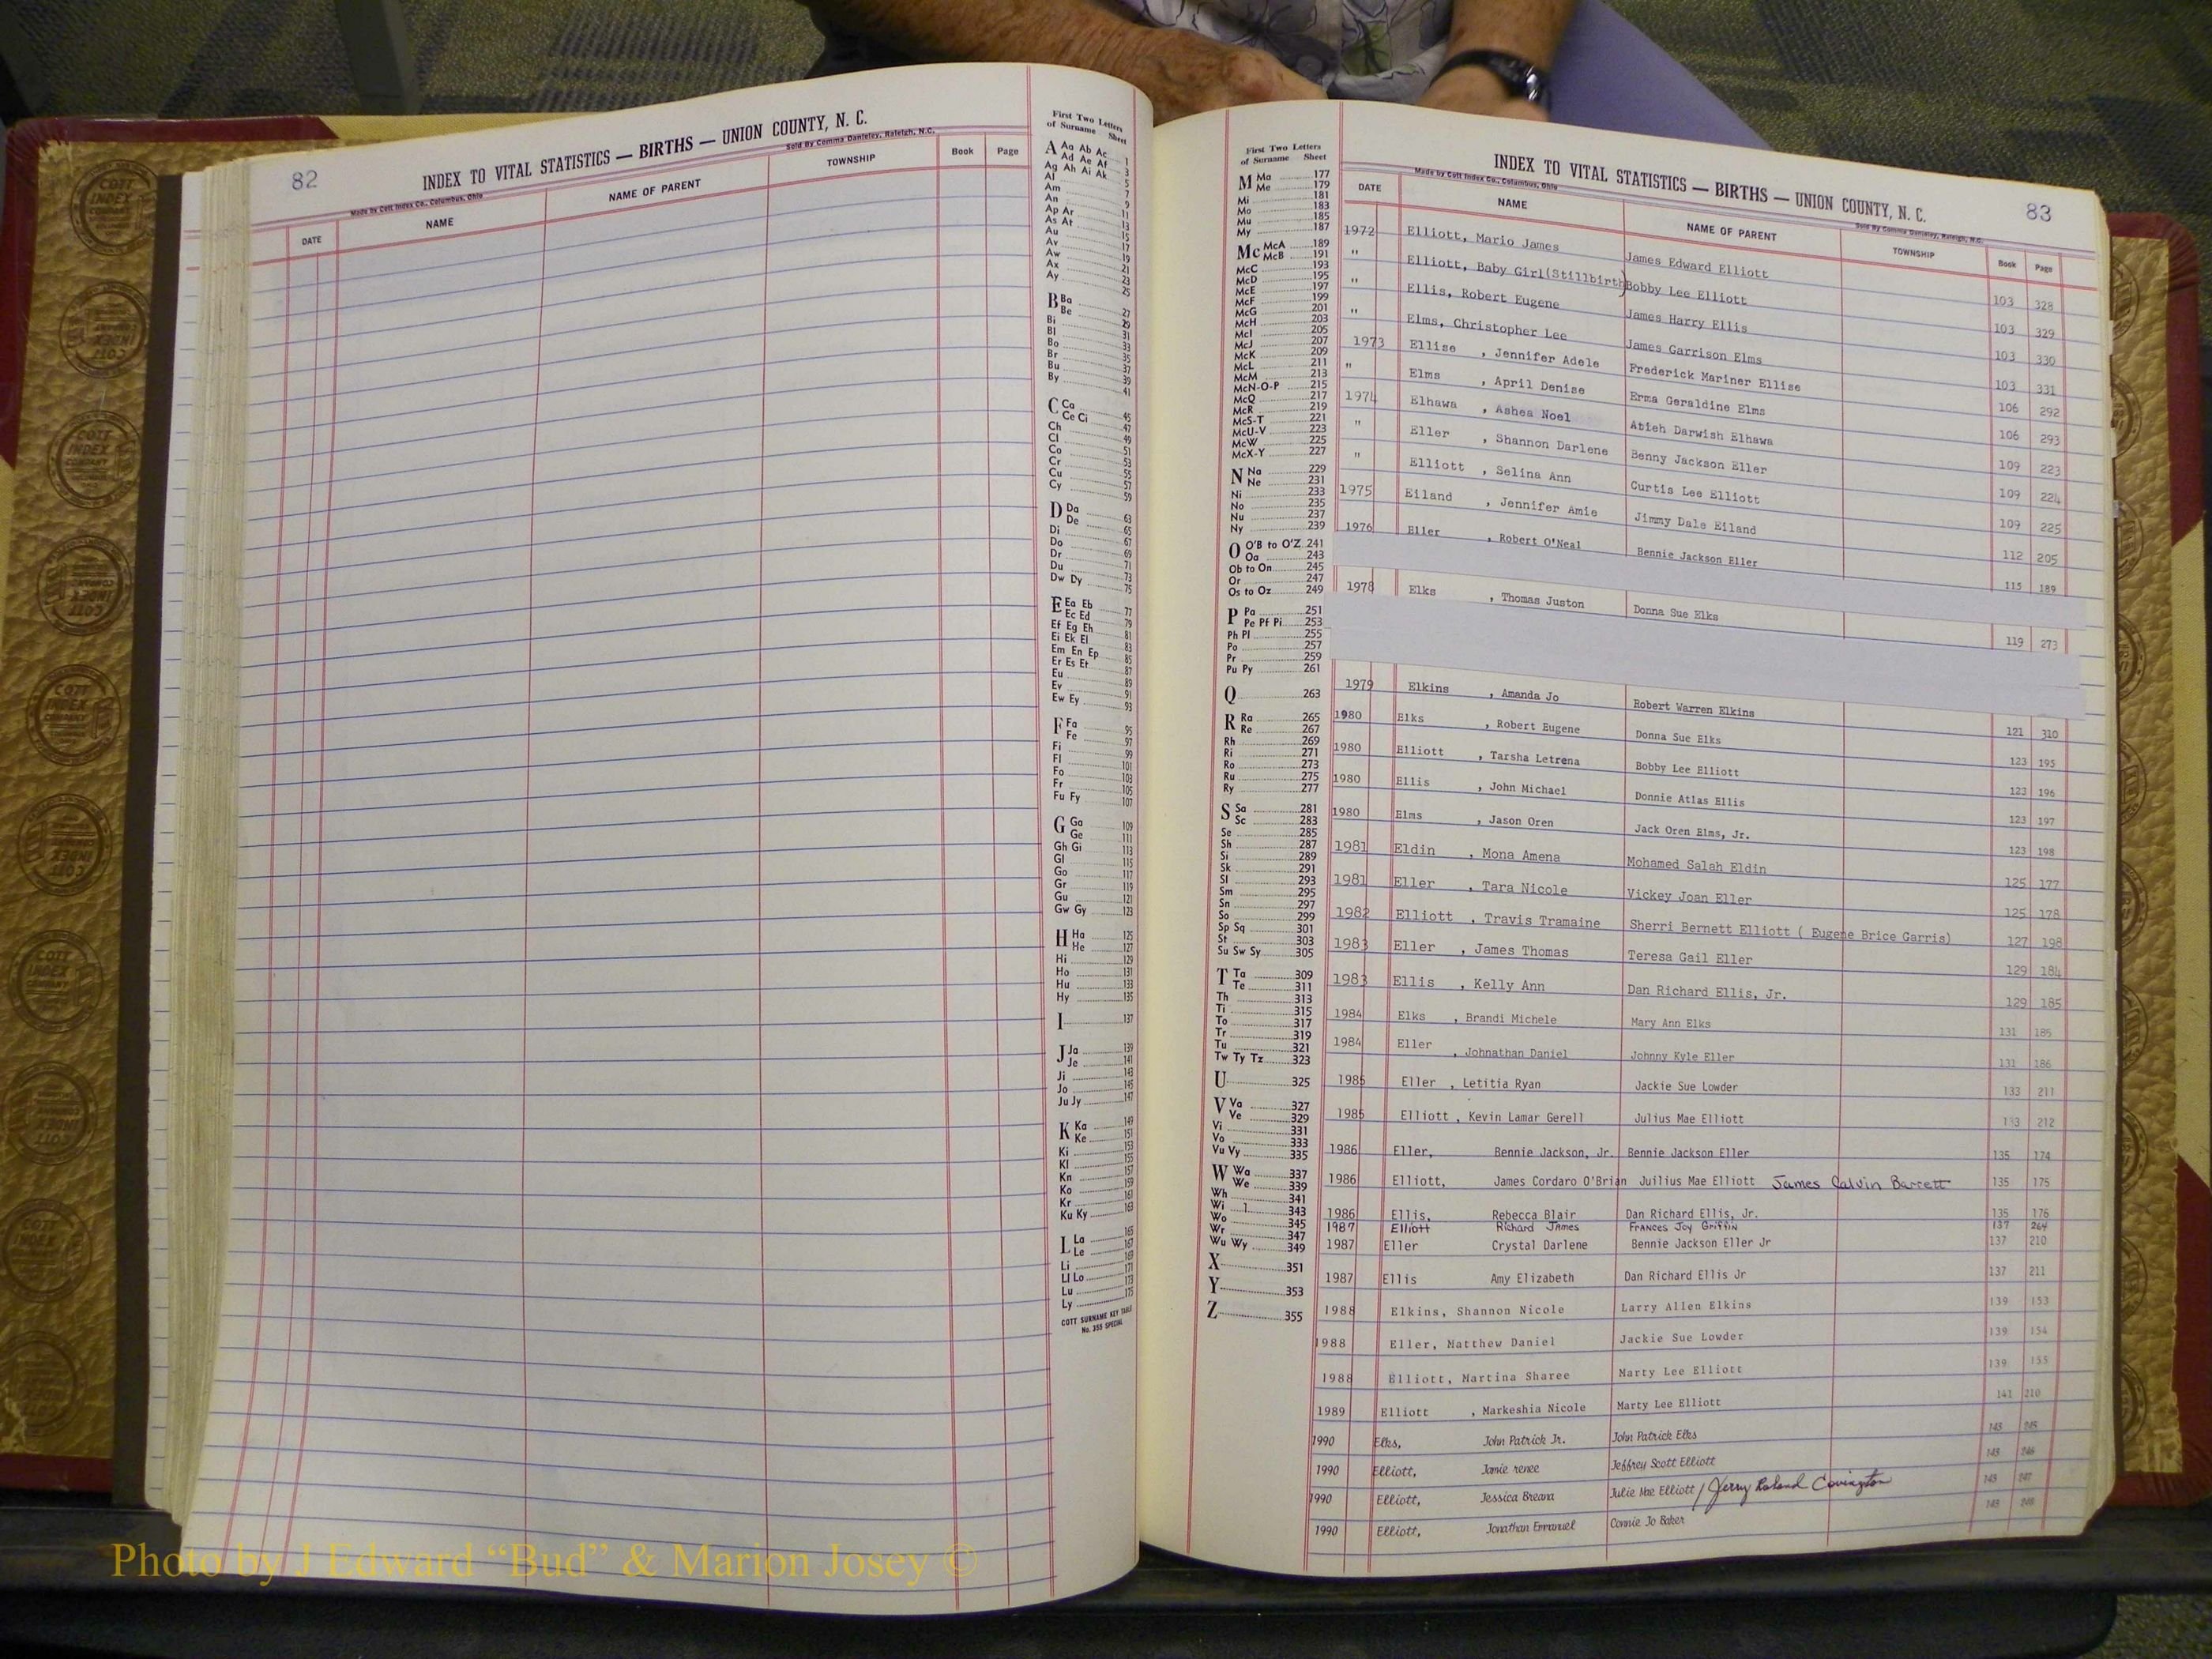 82
INDEX TO VITAL STATISTICS — BIRTHS — UNION COUNTY, N. C.
Made by Cott Index Co., Columbus, Ohio
Sold By Comma Danieley, Raleigh, N.C.
DATE NAME NAME OF PARENT TOWNSHIP Book Page
First Two Letters
of Surname Sheet
A Aa Ab Ac 1
Ad Ae Af 3
Ag Ah Ai Ak 5
Al 7
Am 9
An 11
Ap Ar 13
As At 15
Au 17
Av 19
Aw 21
Ax 23
Ay 25
B Ba 27
Be 29
Bi 31
Bl 33
Bo 35
Br 37
Bu 39
By 41
C Ca 45
Ce Ci 47
Ch 49
Cl 51
Co 53
Cr 55
Cu 57
Cy 59
D Da 63
De 65
Di 67
Do 69
Dr 71
Du 73
Dw Dy 75
E Ea Eb 77
Ec Ed 79
Ef Eg Eh 81
Ei Ek El 83
Em En Ep 85
Er Es Et 87
Eu 89
Ev 91
Ew Ey 93
F Fa 95
Fe 97
Fi 99
Fl 101
Fo 103
Fr 105
Fu Fy 107
G Ga 109
Ge 111
Gh Gi 113
Gl 115
Go 117
Gr 119
Gu 121
Gw Gy 123
H Ha 125
He 127
Hi 129
Ho 131
Hu 133
Hy 135
I 137
J Ja 139
Je 141
Ji 143
Jo 145
Ju Jy 147
K Ka 149
Ke 151
Ki 153
Kl 155
Kn 157
Ko 159
Kr 161
Ku Ky 163
L La 165
Le 167
Li 169
Ll Lo 171
Lu 173
Ly 175
COTT SURNAME KEY TABLE
No. 355 SPECIAL
First Two Letters
of Surname Sheet
M Ma 177
Me 179
Mi 181
Mo 183
Mu 185
My 187
Mc McA 189
McB 191
McC 193
McD 195
McE 197
McF 199
McG 201
McH 203
McI 205
McJ 207
McK 209
McL 211
McM 213
McN-O-P 215
McQ 217
McR 219
McS-T 221
McU-V 223
McW 225
McX-Y 227
N Na 229
Ne 231
Ni 233
No 235
Nu 237
Ny 239
O O'B to O'Z 241
Oa 243
Ob to On 245
Or 247
Os to Oz 249
P Pa 251
Pe Pf Pi 253
Ph Pl 255
Po 257
Pr 259
Pu Py 261
Q 263
R Ra 265
Re 267
Rh 269
Ri 271
Ro 273
Ru 275
Ry 277
S Sa 281
Sc 283
Se 285
Sh 287
Si 289
Sk 291
Sl 293
Sm 295
Sn 297
So 299
Sp Sq 301
St 303
Su Sw Sy 305
T Ta 309
Te 311
Th 313
Ti 315
To 317
Tr 319
Tu 321
Tw Ty Tz 323
U 325
V Va 327
Ve 329
Vi 331
Vo 333
Vu Vy 335
W Wa 337
We 339
Wh 341
Wi 343
Wo 345
Wr 347
Wu Wy 349
X 351
Y 353
Z 355
INDEX TO VITAL STATISTICS — BIRTHS — UNION COUNTY, N. C.
83
Made by Cott Index Co., Columbus, Ohio
Sold By Comma Danieley, Raleigh, N.C.
DATE NAME NAME OF PARENT TOWNSHIP Book Page
1972 Elliott, Mario James James Edward Elliott 103 328
" Elliott, Baby Girl(Stillbirth) Bobby Lee Elliott 103 329
" Ellis, Robert Eugene James Harry Ellis 103 330
" Elms, Christopher Lee James Garrison Elms 103 331
1973 Ellise , Jennifer Adele Frederick Mariner Ellise 106 292
" Elms , April Denise Erma Geraldine Elms 106 293
1974 Elhawa , Ashea Noel Atieh Darwish Elhawa 109 223
" Eller , Shannon Darlene Benny Jackson Eller 109 224
" Elliott , Selina Ann Curtis Lee Elliott 109 225
1975 Eiland , Jennifer Amie Jimmy Dale Eiland 112 205
1976 Eller , Robert O'Neal Bennie Jackson Eller 115 189
1978 Elks , Thomas Juston Donna Sue Elks 119 273
1979 Elkins , Amanda Jo Robert Warren Elkins 121 310
1980 Elks , Robert Eugene Donna Sue Elks 123 195
1980 Elliott , Tarsha Letrena Bobby Lee Elliott 123 196
1980 Ellis , John Michael Donnie Atlas Ellis 123 197
1980 Elms , Jason Oren Jack Oren Elms, Jr. 123 198
1981 Eldin , Mona Amena Mohamed Salah Eldin 125 177
1981 Eller , Tara Nicole Vickey Joan Eller 125 178
1982 Elliott , Travis Tramaine Sherri Bernett Elliott ( Eugene Brice Garris) 127 198
1983 Eller , James Thomas Teresa Gail Eller 129 184
1983 Ellis , Kelly Ann Dan Richard Ellis, Jr. 129 185
1984 Elks , Brandi Michele Mary Ann Elks 131 185
1984 Eller , Johnathan Daniel Johnny Kyle Eller 131 186
1985 Eller , Letitia Ryan Jackie Sue Lowder 133 211
1985 Elliott , Kevin Lamar Gerell Julius Mae Elliott 133 212
1986 Eller, Bennie Jackson, Jr. Bennie Jackson Eller 135 174
1986 Elliott, James Cordaro O'Brian Juilius Mae Elliott James Calvin Barrett 135 175
1986 Ellis, Rebecca Blair Dan Richard Ellis, Jr. 135 176
1987 Elliott Richard James Frances Joy Griffin 137 264
1987 Eller Crystal Darlene Bennie Jackson Eller Jr 137 210
1987 Ellis Amy Elizabeth Dan Richard Ellis Jr 137 211
1988 Elkins, Shannon Nicole Larry Allen Elkins 139 153
1988 Eller, Matthew Daniel Jackie Sue Lowder 139 154
1988 Elliott, Martina Sharee Marty Lee Elliott 139 155
1989 Elliott , Markeshia Nicole Marty Lee Elliott 141 210
1990 Elks, John Patrick Jr. John Patrick Elks 143 245
1990 Elliott, Jamie renee Jeffrey Scott Elliott 143 246
1990 Elliott, Jessica Breana Julie Mae Elliott / Jerry Roland Covington 143 247
1990 Elliott, Jonathan Emmanuel Connie Jo Baker 143 248
Photo by J Edward “Bud” & Marion Josey ©